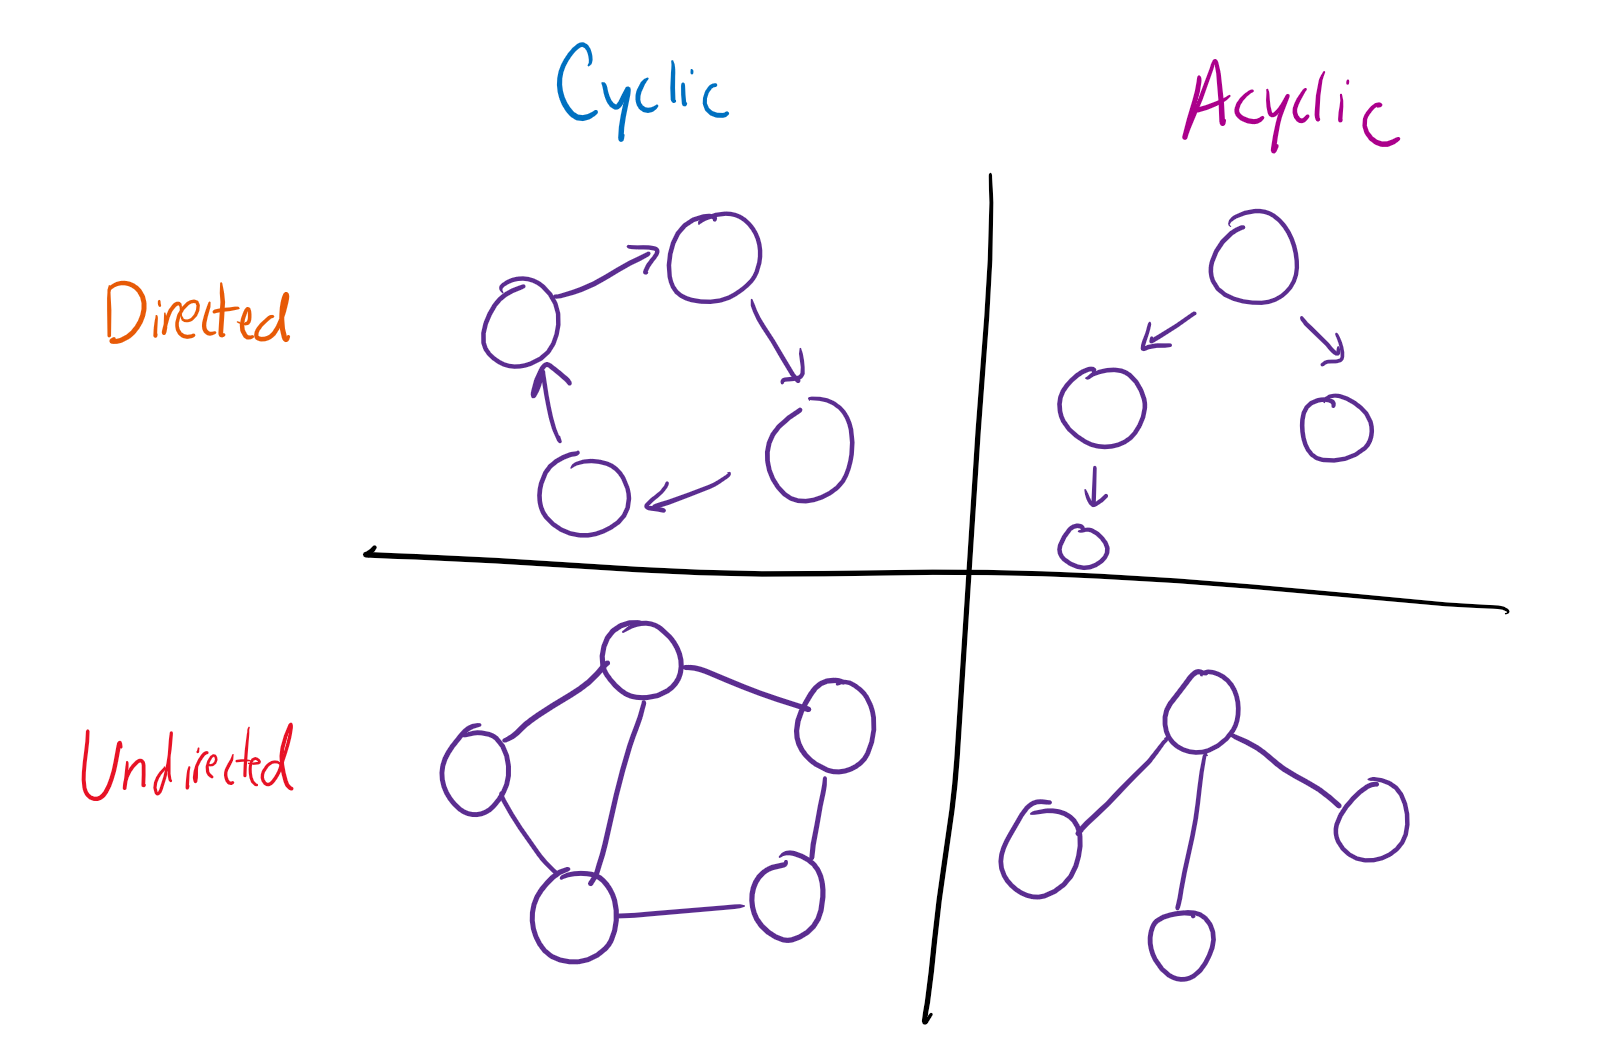 Cyclic
Acyclic
Directed
Undirected